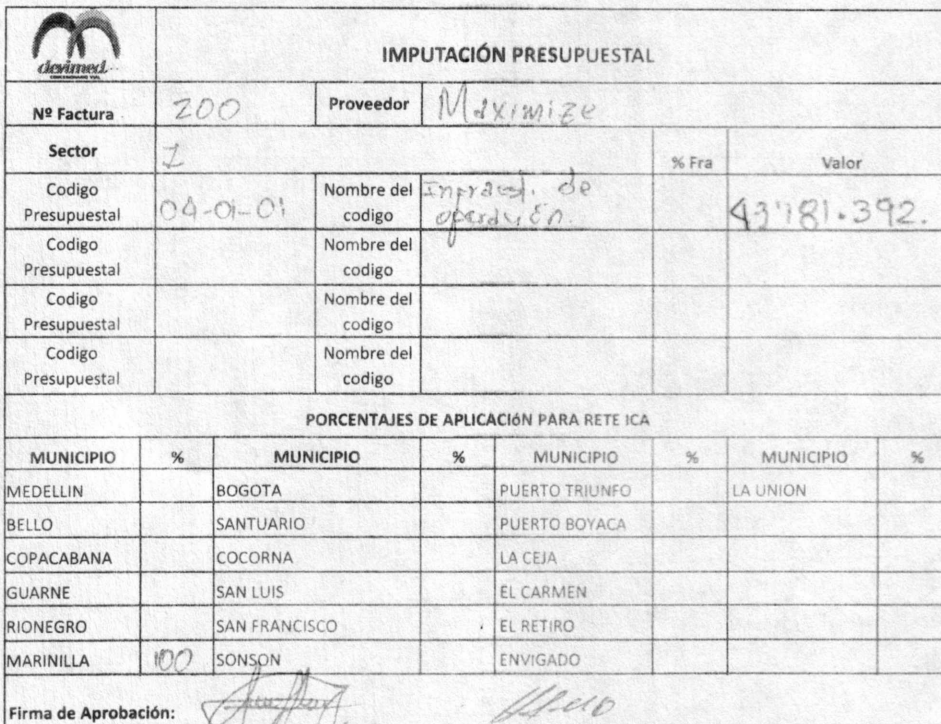 devimed
IMPUTACIÓN PRESUPUESTAL
Nº Factura 200 Proveedor Maximize
Sector 1 % Fra Valor
Codigo Presupuestal 04-01-01 Nombre del codigo de operación. 43'181.392.
Codigo Presupuestal Nombre del codigo
Codigo Presupuestal Nombre del codigo
Codigo Presupuestal Nombre del codigo
PORCENTAJES DE APLICACIÓN PARA RETE ICA
MUNICIPIO % MUNICIPIO % MUNICIPIO % MUNICIPIO %
MEDELLIN BOGOTA PUERTO TRIUNFO LA UNION
BELLO SANTUARIO PUERTO BOYACA
COPACABANA COCORNA LA CEJA
GUARNE SAN LUIS EL CARMEN
RIONEGRO SAN FRANCISCO EL RETIRO
MARINILLA 100 SONSON ENVIGADO
Firma de Aprobación: